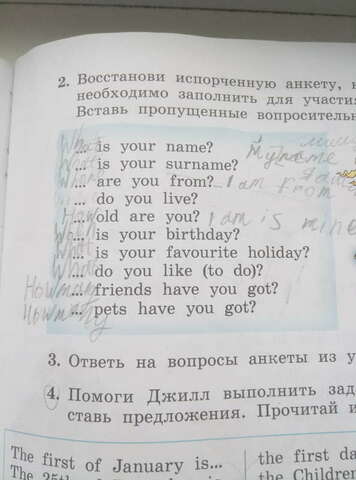 2. Восстанови испорченную анкету,
необходимо заполнить для участия
Вставь пропущенные вопросительн
What ... is your name? My name
What ... is your surname?
... are you from? I am from
... do you live?
How ... old are you? I am is nine
... is your birthday?
What ... is your favourite holiday?
What ... do you like (to do)?
How many ... friends have you got?
How many ... pets have you got?
3. Ответь на вопросы анкеты из у
4. Помоги Джилл выполнить зад
ставь предложения. Прочитай и
The first of January is...
the first da
The 25th of
the Children